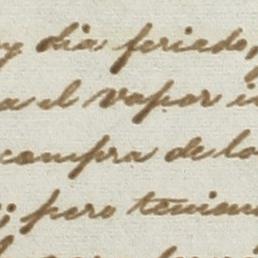 y dia feriado,
a el vapor i
compra de lo
; pero tenian